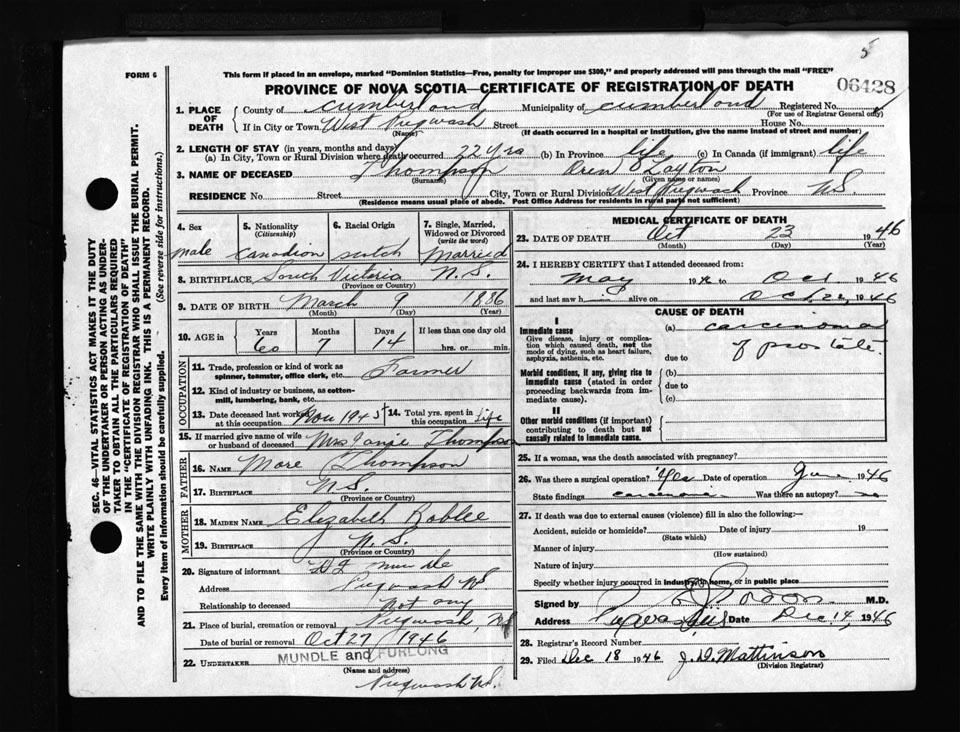 5
FORM 6
This form if placed in an envelope, marked "Dominion Statistics—Free, penalty for improper use $300," and properly addressed will pass through the mail "FREE"
PROVINCE OF NOVA SCOTIA—CERTIFICATE OF REGISTRATION OF DEATH
06428
SEC. 46—VITAL STATISTICS ACT MAKES IT THE DUTY
OF THE UNDERTAKER OR PERSON ACTING AS UNDER-
TAKER TO OBTAIN ALL THE PARTICULARS REQUIRED
IN THE "CERTIFICATE OF REGISTRATION OF DEATH"
AND TO FILE THE SAME WITH THE DIVISION REGISTRAR WHO SHALL ISSUE THE BURIAL PERMIT.
WRITE PLAINLY WITH UNFADING INK. THIS IS A PERMANENT RECORD.
Every item of information should be carefully supplied. (See reverse side for instructions.)
1. PLACE OF DEATH
County of Cumberland Municipality of Cumberland Registered No.
(For use of Registrar General only)
If in City or Town West Pugwash Street House No.
(Name) (If death occurred in a hospital or institution, give the name instead of street and number)
2. LENGTH OF STAY (in years, months and days)
(a) In City, Town or Rural Division where death occurred 22 yrs (b) In Province life (c) In Canada (if immigrant) life
3. NAME OF DECEASED Thompson Oren Clayton
(Surname) (Given name or names)
RESIDENCE No. Street City, Town or Rural Division West Pugwash Province N.S.
(Residence means usual place of abode. Post Office Address for residents in rural parts not sufficient)
4. Sex 5. Nationality (Citizenship) 6. Racial Origin 7. Single, Married, Widowed or Divorced (write the word)
male Canadian scotch married
8. BIRTHPLACE South Victoria N.S.
(Province or Country)
9. DATE OF BIRTH March 9 1886
(Month) (Day) (Year)
10. AGE in Years Months Days If less than one day old
60 7 14 hrs. or min.
OCCUPATION
11. Trade, profession or kind of work as spinner, teamster, office clerk, etc. Farmer
12. Kind of industry or business, as cotton-mill, lumbering, bank, etc.
13. Date deceased last worked at this occupation Nov 1945 14. Total yrs. spent in this occupation life
15. If married give name of wife or husband of deceased Mrs Janie Thompson
FATHER
16. NAME More Thompson
17. BIRTHPLACE N.S.
(Province or Country)
MOTHER
18. MAIDEN NAME Elizabeth
19. BIRTHPLACE N.S.
(Province or Country)
20. Signature of informant Mundle
Address Pugwash NS.
Relationship to deceased not any
21. Place of burial, cremation or removal Pugwash, NS
Date of burial or removal Oct 27 1946
22. UNDERTAKER MUNDLE and FURLONG
(Name and address)
Pugwash N.S.
MEDICAL CERTIFICATE OF DEATH
23. DATE OF DEATH Oct 23 1946
(Month) (Day) (Year)
24. I HEREBY CERTIFY that I attended deceased from:
May 19 to Oct 1946
and last saw h alive on Oct 22, 1946
CAUSE OF DEATH
I
Immediate cause
Give disease, injury or complication which caused death, not the mode of dying, such as heart failure, asphyxia, asthenia, etc.
(a) carcinoma
of prostate
due to
Morbid conditions, if any, giving rise to immediate cause (stated in order proceeding backwards from immediate cause).
(b)
due to
(c)
II
Other morbid conditions (if important) contributing to death but not causally related to immediate cause.
25. If a woman, was the death associated with pregnancy?
26. Was there surgical operation? Yes Date of operation June 1946
State findings carcinoma Was there an autopsy? no
27. If death was due to external causes (violence) fill in also the following:—
Accident, suicide or homicide? Date of injury 19
(State which)
Manner of injury
(How sustained)
Nature of injury
Specify whether injury occurred in industry, in home, or in public place
Signed by M.D.
Address Pugwash Date Dec 14, 1946
28. Registrar's Record Number
29. Filed Dec 18 1946 J. D. Mattinson
(Division Registrar)